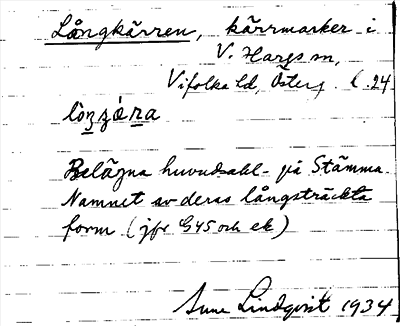 Långkärren, kärrmarker i
V. Hargs sn,
Vifolka hd, Österg. l. 24
Belägna huvudsakl. på Stämma.
Namnet av deras långsträckta
form (jfr G45 och ek)
Sune Lindqvist 1934